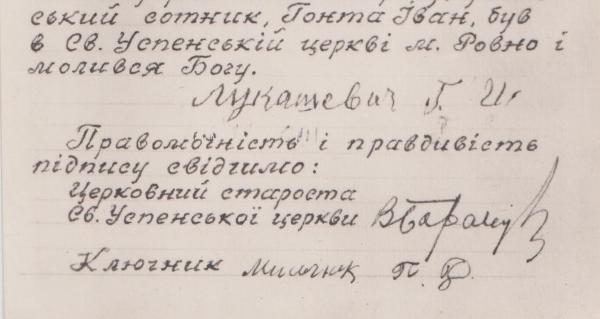 ський сотник, Гонта Іван, був
в Св. Успенській церкві м. Ровно і
молився Богу.
Лукашевич Г. И.
Правомочність і правдивість
підпису свідчимо:
Церковний староста
Св. Успенської церкви
Ключник П.